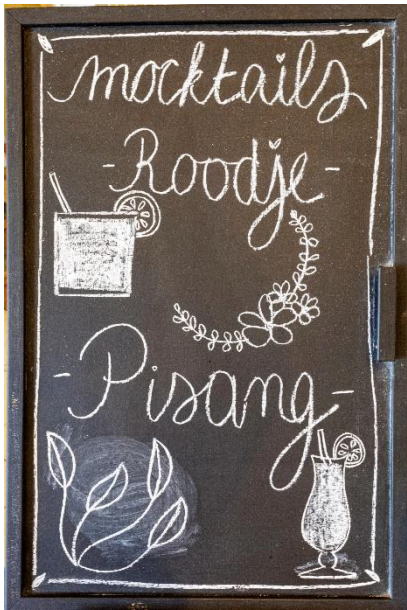 mocktails
-Roodje-
-Pisang-